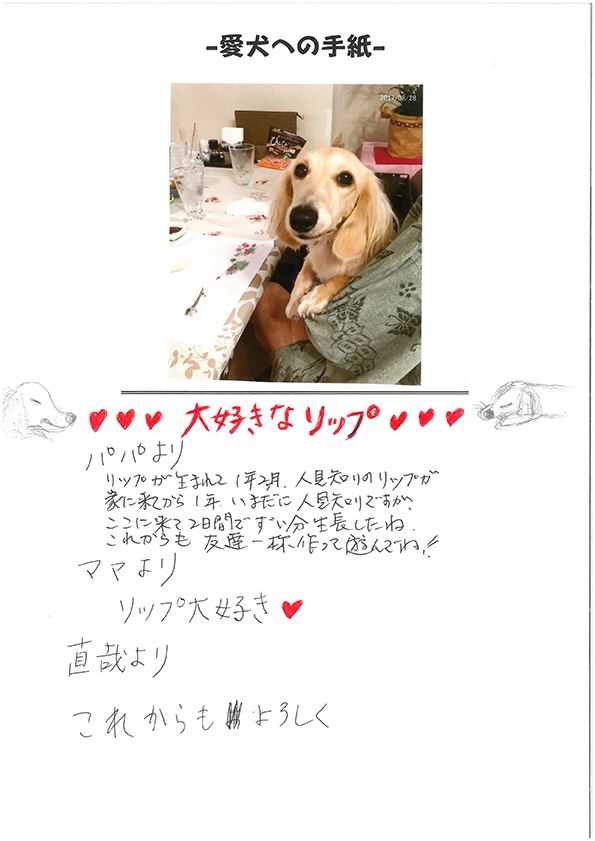 -愛犬への手紙-
2017/08/28
大好きなリップ
パパより
リップが生まれて1年2ヶ月、人見知りのリップが
家に来てから1年、いまだに人見知りですが、
ここに来て2日間でずい分生長したね。
これからも友達一杯作って遊んでね!!
ママより
リップ大好き
直哉より
これからもよろしく